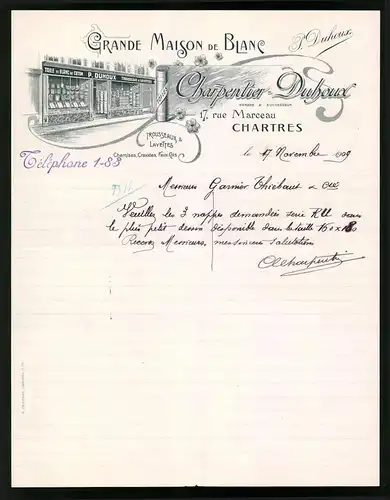 GRANDE MAISON DE BLANC
P. Duhoux
TOILE
P. DUHOUX
Charpentier-Duhoux
GENDRE & SUCCESSEUR
17, rue Marceau
CHARTRES
TROUSSEAUX &
LAYETTES
Chemises, Cravates, Faux-Cols
Téléphone 1-83
le 17 Novembre 1909
Messieurs Garnier Thiebaut & Cie
Veuillez les 3 nappes demandées série RU dans
le plus petit dessin disponible dans la taille
Recevez Messieurs, mes sincères salutations
Charpentier